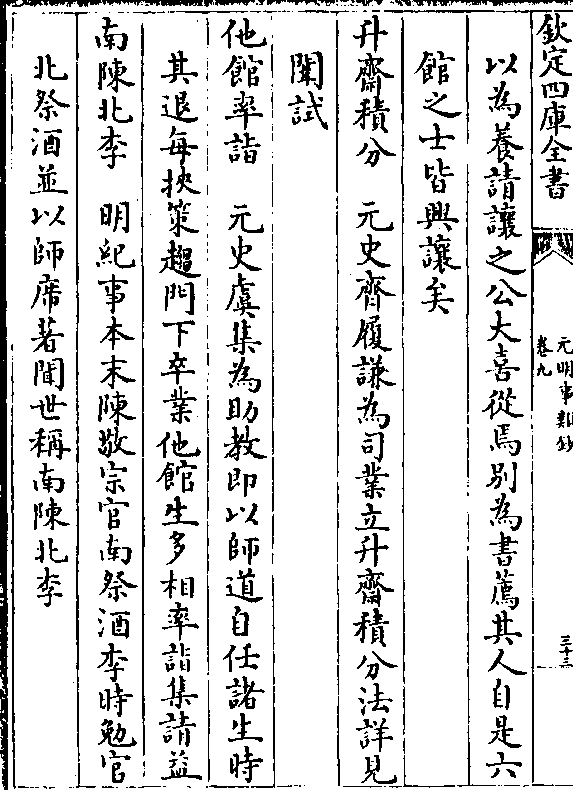 欽定四庫全書
元明事類鈔
卷九
三十三
以為養請讓之公大喜從焉別為書薦其人自是六
館之士皆興讓矣
升齋積分　元史齊履謙為司業立升齋積分法詳見
闈試
他館率詣　元史虞集為助教即以師道自任諸生時
其退每挾策趨門下卒業他館生多相率詣集請益
南陳北李　明紀事本末陳敬宗官南祭酒李時勉官
北祭酒並以師席著聞世稱南陳北李